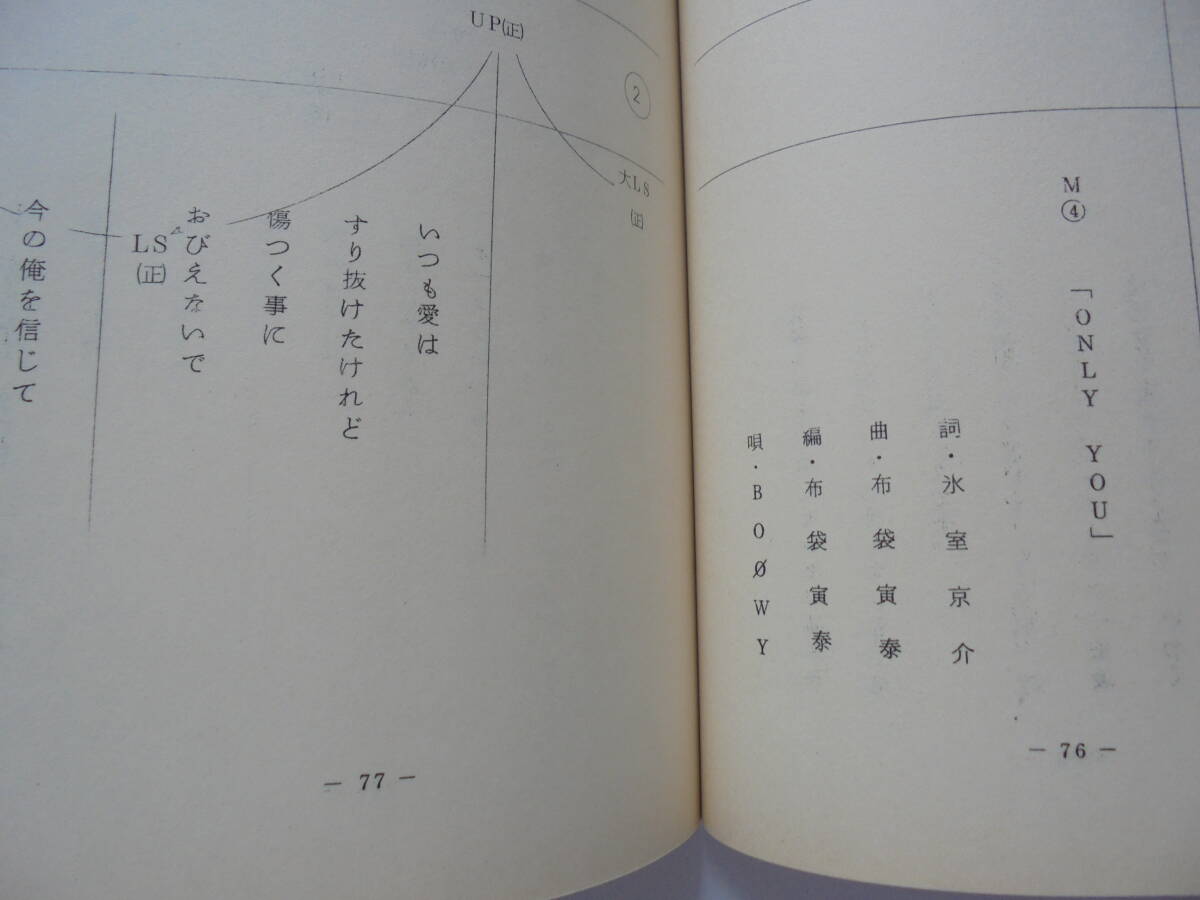 M④ 「ONLY YOU」
詞・氷室京介
曲・布袋寅泰
編・布袋寅泰
唄・BOØWY
― 76 ―
②
大LS(正)
UP(正)
いつも愛は
すり抜けたけれど
傷つく事に
おびえないで
LS(正)
今の俺を信じて
― 77 ―